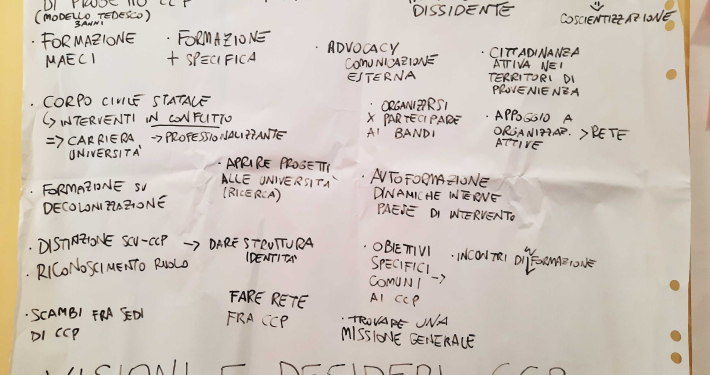 DI PROGETTO CCP
(MODELLO TEDESCO)
3 ANNI
DISSIDENTE
COSCIENTIZZAZIONE
· FORMAZIONE
MAECI
· FORMAZIONE
+ SPECIFICA
· ADVOCACY
COMUNICAZIONE
ESTERNA
· CITTADINANZA
ATTIVA NEI
TERRITORI DI
PROVENIENZA
· CORPO CIVILE STATALE
↳ INTERVENTI IN CONFLITTO
=> CARRIERA → PROFESSIONALIZZANTE
UNIVERSITÀ
· ORGANIZZRSI
X PARTECIPARE
AI BANDI
· APPOGGIO A
ORGANIZZAZ. > RETE
ATTIVE
· APRIRE PROGETTI
ALLE UNIVERSITÀ
(RICERCA)
· FORMAZIONE SU
DECOLONIZZAZIONE
· AUTOFORMAZIONE
DINAMICHE INTERNE
PAESE DI INTERVENTO
· DISTINZIONE SCU-CCP → DARE STRUTTURA
IDENTITÀ
· RICONOSCIMENTO RUOLO
· OBIETTIVI
SPECIFICI
COMUNI →
AI CCP
· INCONTRI DI FORMAZIONE
· SCAMBI FRA SEDI
DI CCP
FARE RETE
FRA CCP
· TROVARE UNA
MISSIONE GENERALE
VISIONI E DESIDERI CCP